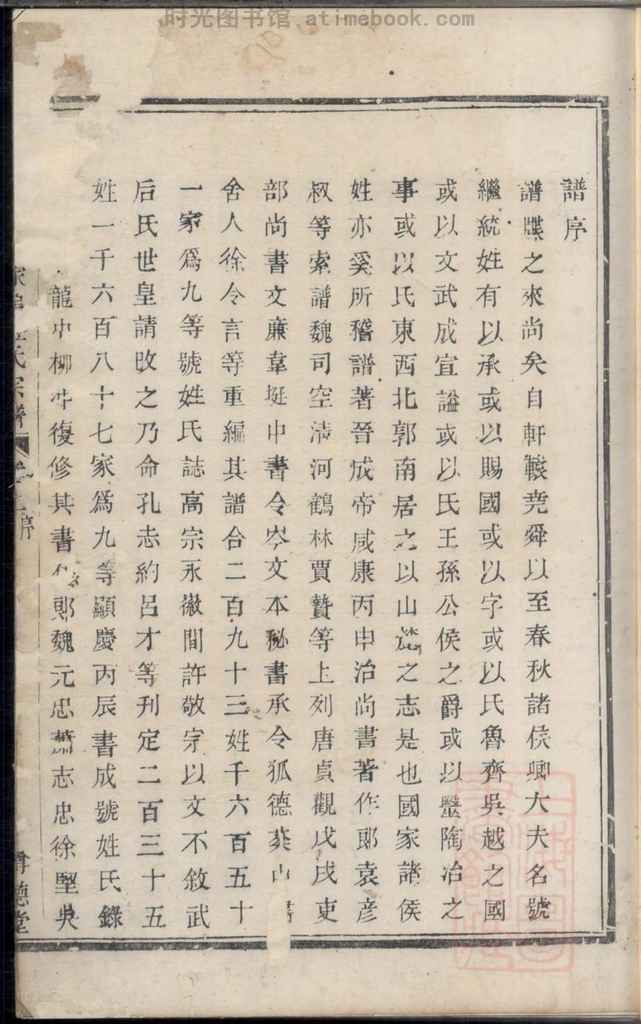 时光图书馆 atimebook.com
譜序
譜牒之來尚矣自軒轅堯舜以至春秋諸侯卿大夫名號
繼統姓有以承或以賜國或以字或以氏魯齊吳越之國
或以文武成宣謚或以氏王孫公侯之爵或以壓陶冶之
事或以氏東西北郭南居之以山之志是也國家諸侯
姓亦奚所稽譜著晉成帝咸康丙申治尚書著作郎袁彥
叔等索譜魏司空清河鶴林賈贊等上列唐貞觀戊戌吏
部尚書文廉韋挺中書令岑文本秘書承令狐德棻山書
舍人徐令言等重編其譜合二百九十三姓千六百五十
一家爲九等號姓氏誌高宗永徽間許敬宗以文不敘武
后氏世皇請改之乃命孔志約呂才等刋定二百三十五
姓一千六百八十七家爲九等顯慶丙辰書成號姓氏錄
龍中柳冲復修其書鄭魏元忠蕭志忠徐堅吳
氏宗譜 序 德堂